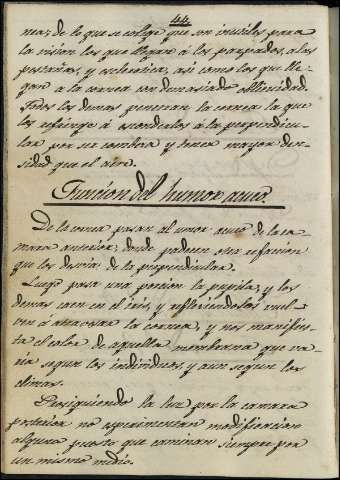 44
mas, de lo que se colige que son inutiles para
la vision los que llegan á los parpados, a las
pestañas, y esclerotica, asi como los que lle-
gan a la cornea con demasiada oblicuidad.
Todos los demas penetran la cornea la que
los refringe ó acercandolos á la perpendicu-
lar por ser combexa y tener mayor den-
sidad que el aire.
Funcion del humor acueo.
De la cornea pasan al umor acueo de la ca-
mara anterior, donde padecen otra refracion
que los desvia de la perpendicular.
Luego pasa una porcion la pupila, y los
demas caen en el iris, y reflexandolos vuel-
ven á atravesar la cornea, y nos manifies-
ta el color de aquella membrana que va-
ria segun los individuos, y aun segun los
climas.
Prosiguiendo la luz por la camara
posterior no esperimentan modificacion
alguna puesto que caminan siempre por
un mismo medio.